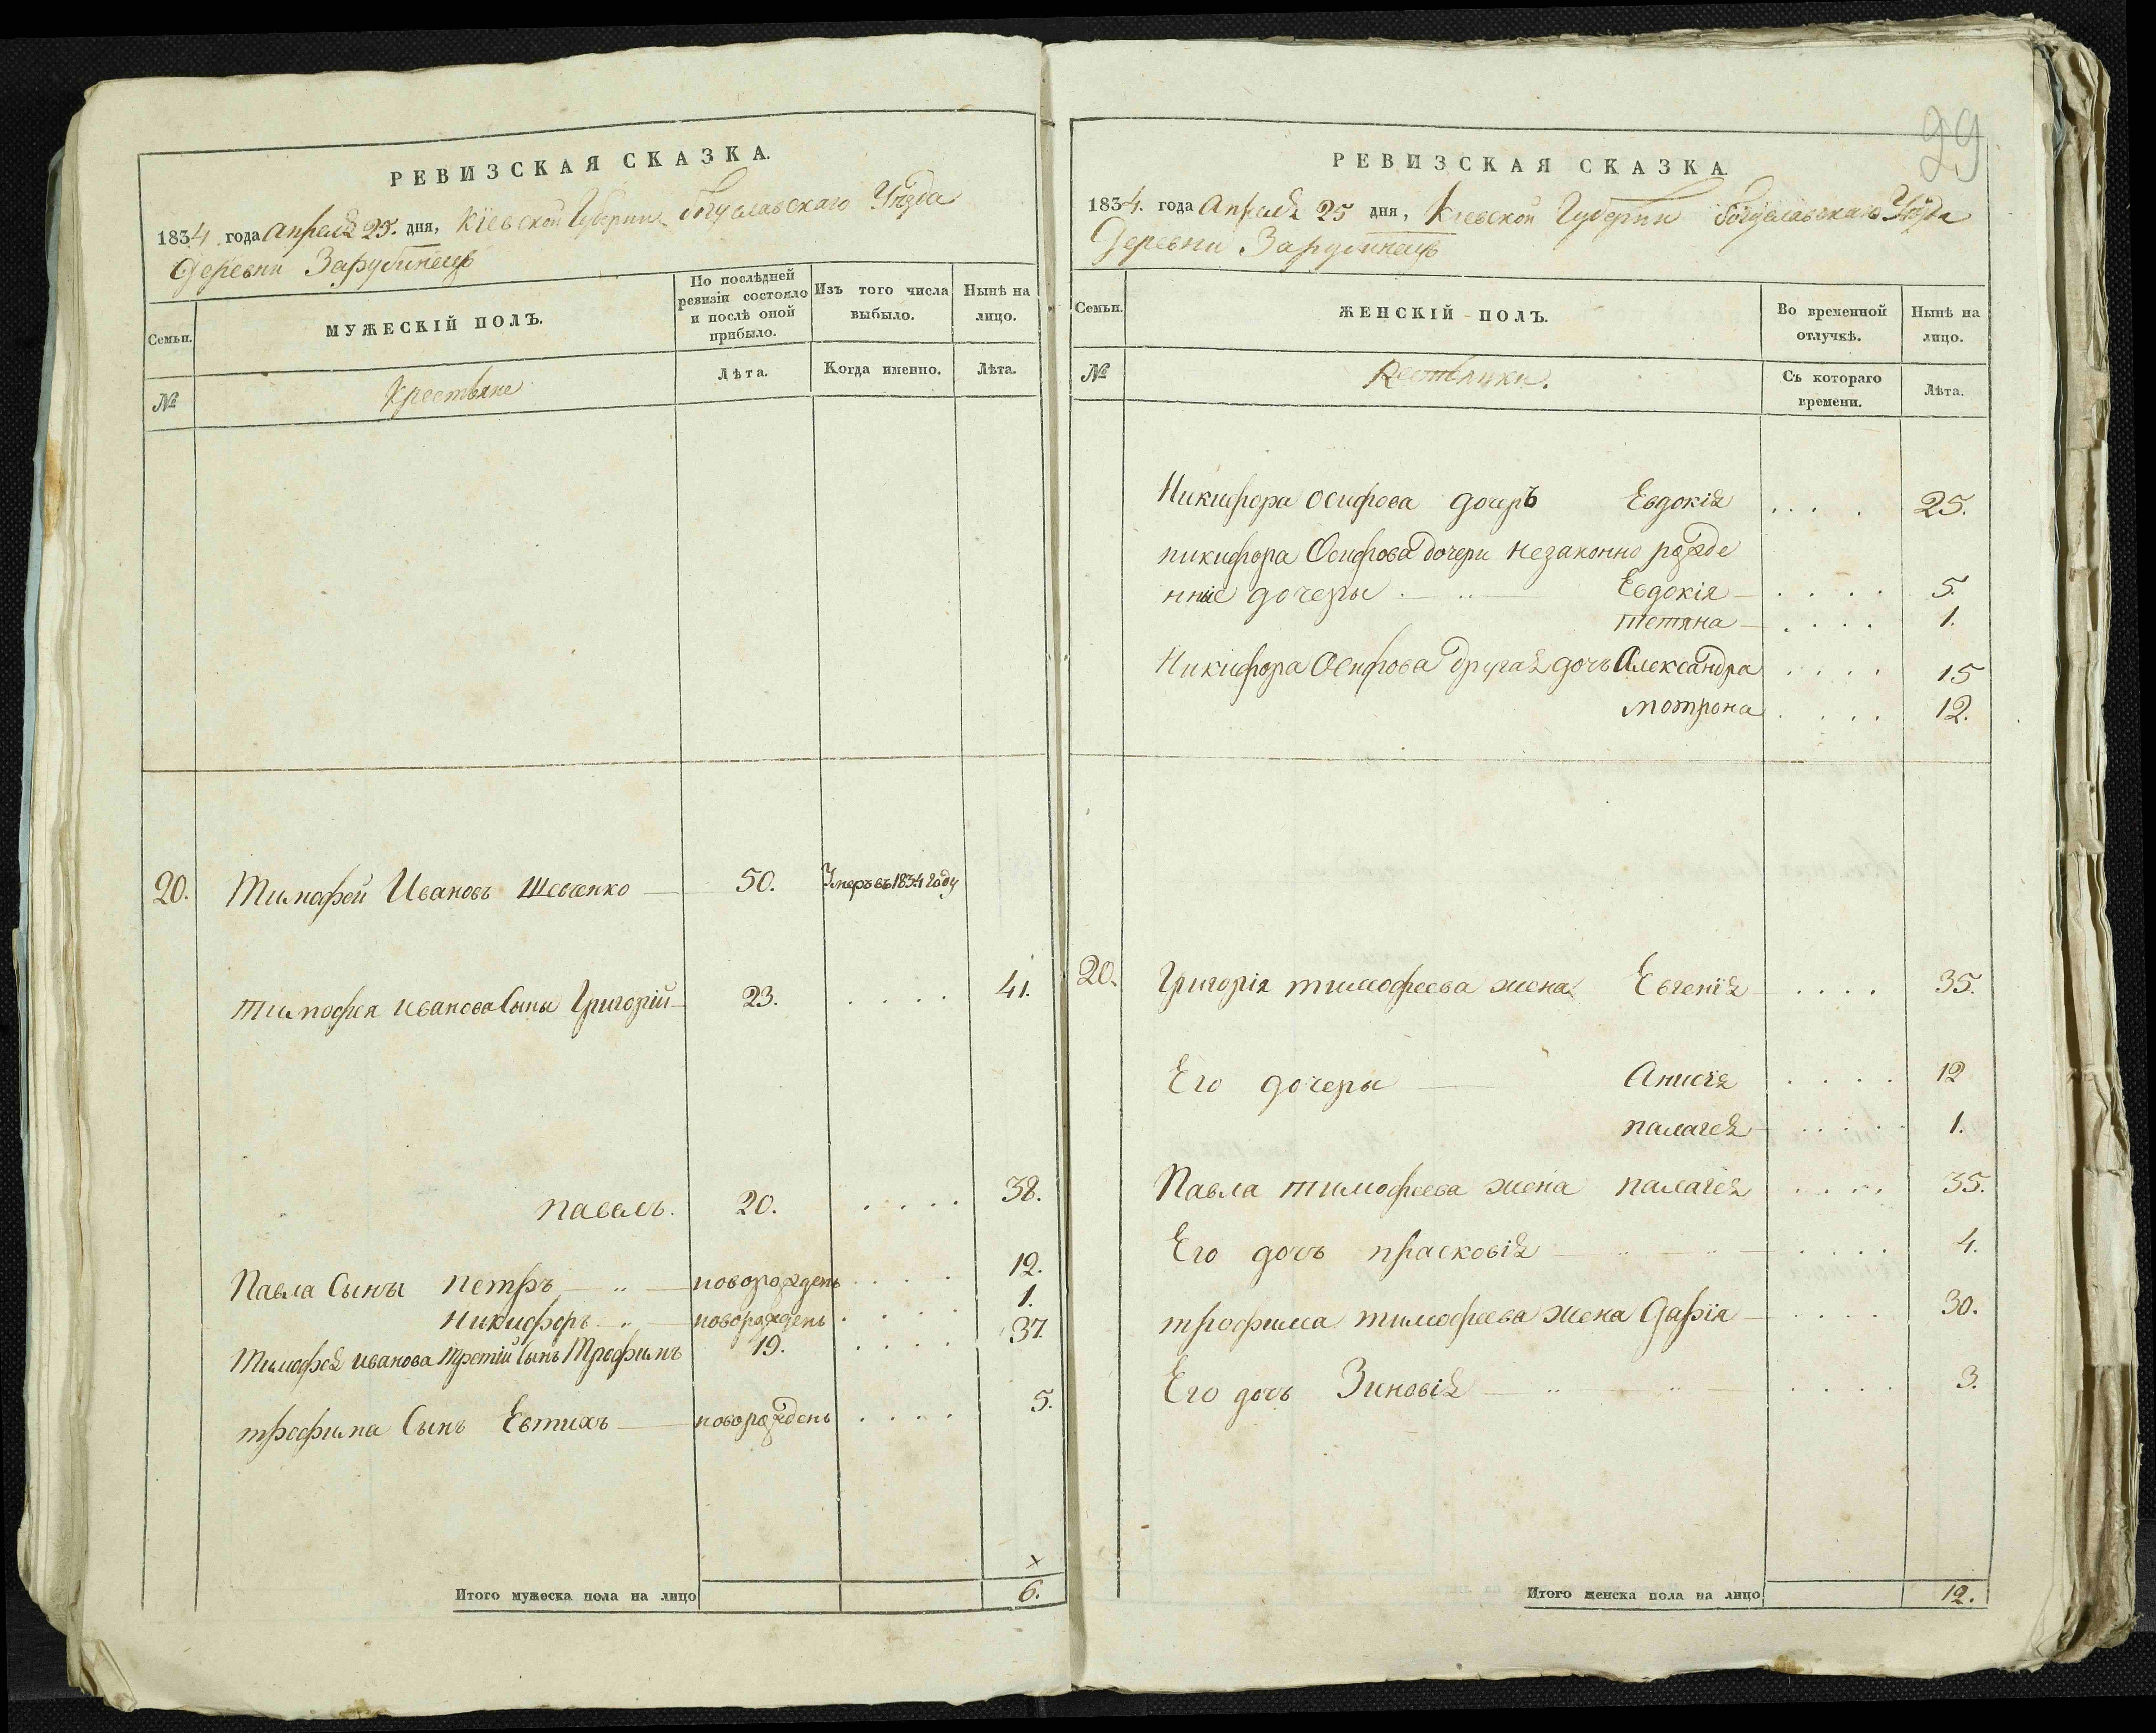 РЕВИЗСКАЯ СКАЗКА.
1834 года апреля 25. дня, Кіевской Губерніи Богуславскаго Уѣзда
Деревни Зарубинецъ
Семьи.
МУЖЕСКІЙ ПОЛЪ.
По послѣдней ревизіи состояло и послѣ оной прибыло.
Изъ того числа выбыло.
Нынѣ на лицо.
№
Крестьяне
Лѣта.
Когда именно.
Лѣта.
20. Тимофей Ивановъ Шевченко 50. Умеръ въ 1834 году
тимофея иванова Сыны Григорій 23. . . . . 41.
павелъ. 20. . . . . 38.
Павла Сыны петръ новорожденъ . . . . 12.
никифоръ новорожденъ . . . 1.
Тимофея иванова третій сынъ Трофимъ 19. . . . . 37
трофима Сынъ Евтихъ новорожденъ . . . . 5.
×
Итого мужеска пола на лицо 6.
29
РЕВИЗСКАЯ СКАЗКА
1834. года Апреля 25 дня, Кіевской Губерніи Богуславскаго Уѣзда
Деревни Зарубинецъ
Семьи.
ЖЕНСКІЙ ПОЛЪ.
Во временной отлучкѣ.
Нынѣ на лицо.
№
Съ котораго времени.
Лѣта.
Никифора осифова дочерь Евдокія . . . . 25.
никифора Осифова дочери незаконно рожде
нныé дочеры Евдокія . . . . 5.
тетяна . . . . 1.
Никифора Осифова другая дочь Александра . . . . 15
мотрона . . . . 12.
20. Григорія тимофеева жена Евгенія . . . . 35.
Его дочеры Анисія . . . . 12
палагея . . . . 1.
Павла тимофеева жена палагея . . . . 35.
Его дочь прасковія . . . . 4.
трофима тимофеева жена Дарія . . . . 30.
Его дочь Зиновія . . . . 3.
Итого женска пола на лицо 12.